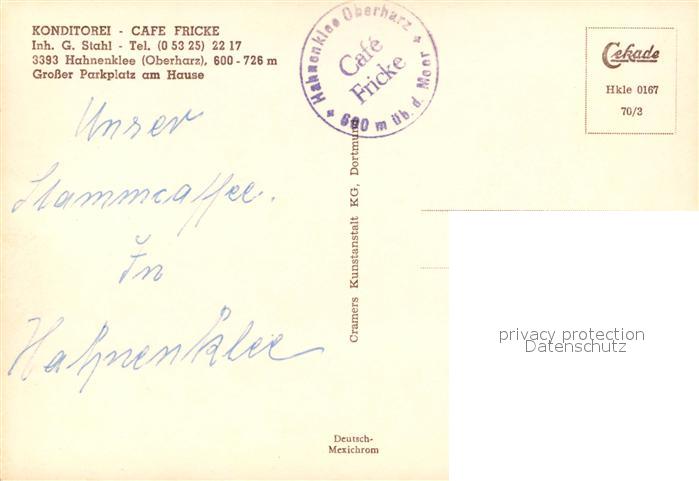 KONDITOREI - CAFE FRICKE
Inh. G. Stahl - Tel. (0 53 25) 22 17
3393 Hahnenklee (Oberharz), 600 - 726 m
Großer Parkplatz am Hause
* Hahnenklee Oberharz *
Café
Fricke
600 m üb. d. Meer
Cekade
Hkle 0167
70/3
Unser
Stammcaffee.
In
Hahnenklee
Cramers Kunstanstalt KG, Dortmund
privacy protection
Datenschutz
Deutsch-
Mexichrom